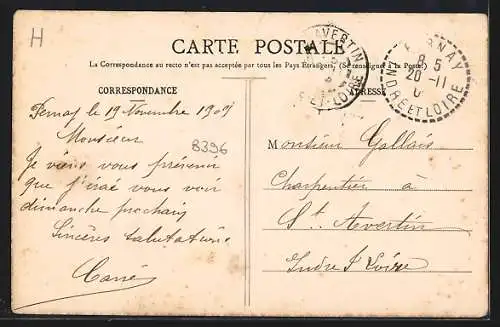 H
CARTE POSTALE
La Correspondance au recto n'est pas acceptée par tous les Pays Étrangers. (Se renseigner à la Poste)
CORRESPONDANCE
ADRESSE
AVERTIN
ET-LOIRE
PERNAY
8 5
20 -11
INDRE ET LOIRE
Pernay le 19 Novembre 1909
8396
Monsieur
Je viens vous prévenir
que j'irai vous voir
dimanche prochain
Sincères salutations
Carré
Monsieur Gallais
Charpentier à
St. Avertin
Indre & Loire